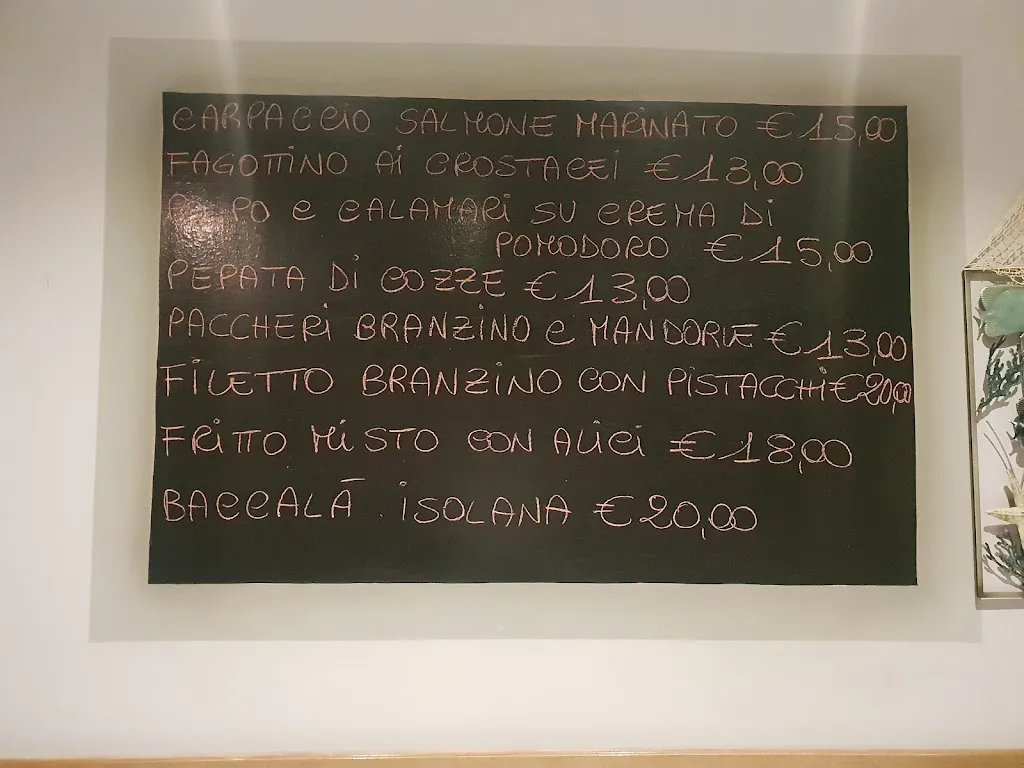 CARPACCIO SALMONE MARINATO € 15,00
FAGOTTINO Ai CROSTACEi € 13,00
POLPO e CALAMARi SU CREMA Di
POMODORO € 15,00
PEPATA Di COZZE € 13,00
PACCHERi BRANZINO e MANDORLE € 13,00
FiLETTO BRANZINO CON PiSTACCHi € 20,00
FRiTTO MiSTO CON ALiCi € 18,00
BACCALÀ iSOLANA € 20,00